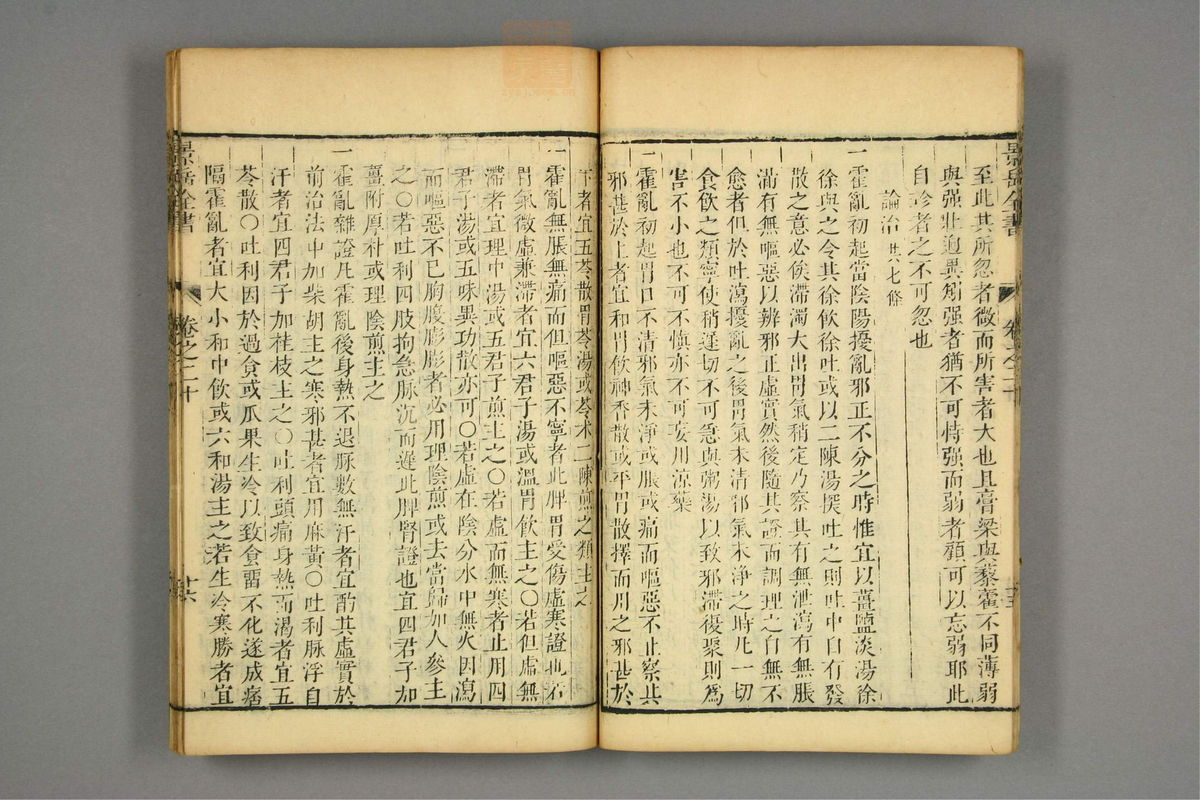 景岳全書
卷之二十
至此其所忽者微而所害者大也且膏梁與藜藿不同薄弱
與强壯迥異矧强者猶不可恃强而弱者顧可以忘弱耶此
自診者之不可忽也
論治 共七條
一霍亂初起當陰陽擾亂邪正不分之時惟宜以薑鹽淡湯徐
徐與之令其徐飲徐吐或以二陳湯探吐之則吐中自有發
散之意必俟滯濁大出胃氣稍定乃察其有無泄瀉有無脹
滿有無嘔惡以辨邪正虛實然後隨其證而調理之自無不
愈者但於吐瀉擾亂之後胃氣未清邪氣未淨之時凡一切
食飲之類寧使稍遲切不可急與粥湯以致邪滯復聚則為
害不小也不可不慎亦不可妄用涼藥
一霍亂初起胃口不清邪氣未淨或脹或痛而嘔惡不止察其
邪甚於上者宜和胃飲神香散或平胃散擇而用之邪甚於
下者宜五苓散胃苓湯或苓术二陳煎之類主之
一霍亂無脹無痛而但嘔惡不寧者此脾胃受傷虛寒證也若
胃氣微虛兼滯者宜六君子湯或溫胃飲主之○若但虛無
滯者宜理中湯或五君子煎主之○若虛而無寒者止用四
君子湯或五味異功散亦可○若虛在陰分水中無火因瀉
而嘔惡不已胸腹膨膨者必用理陰煎或去當歸加人參主
之○若吐利四肢拘急脉沉而遲此脾腎證也宜四君子加
薑附厚朴或理陰煎主之
一霍亂雜證凡霍亂後身熱不退脉數無汗者宜酌其虛實於
前治法中加柴胡主之寒邪甚者宜用麻黃○吐利脉浮自
汗者宜四君子加桂枝主之○吐利頭痛身熱而渴者宜五
苓散○吐利因於過食或瓜果生冷以致食畱不化遂成痞
隔霍亂者宜大小和中飲或六和湯主之若生冷寒勝者宜
景岳全書
卷之二十
廿六